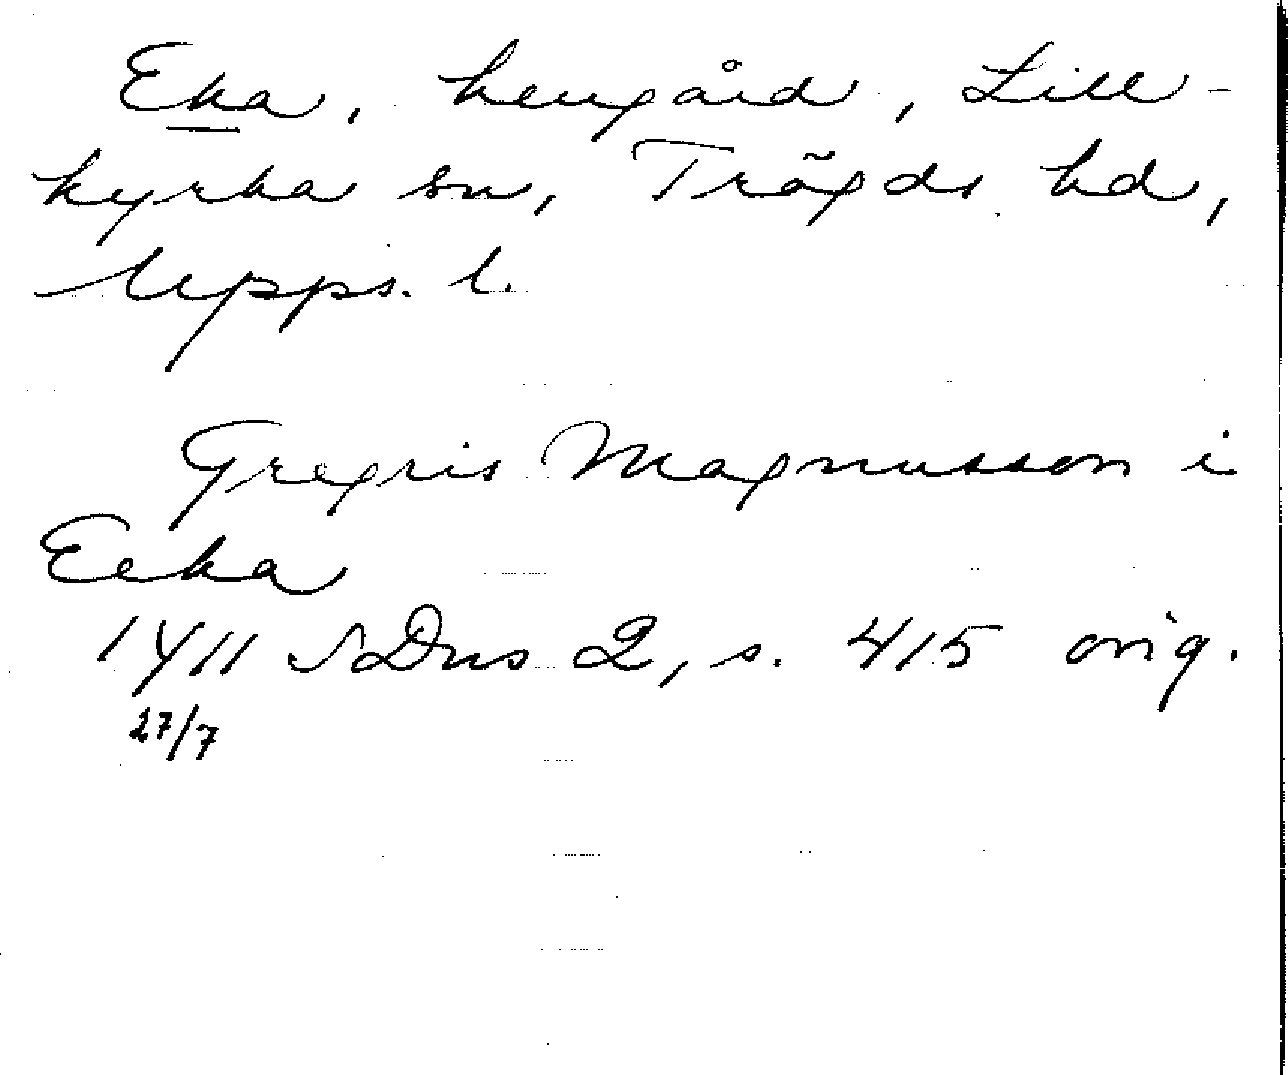 Eka, herrgård, Lill-
kyrka sn, Trögds hd,
Upps. l.
Gregris Magnusson i
Eeka
1411 SDns 2, s. 415 orig.
27/7